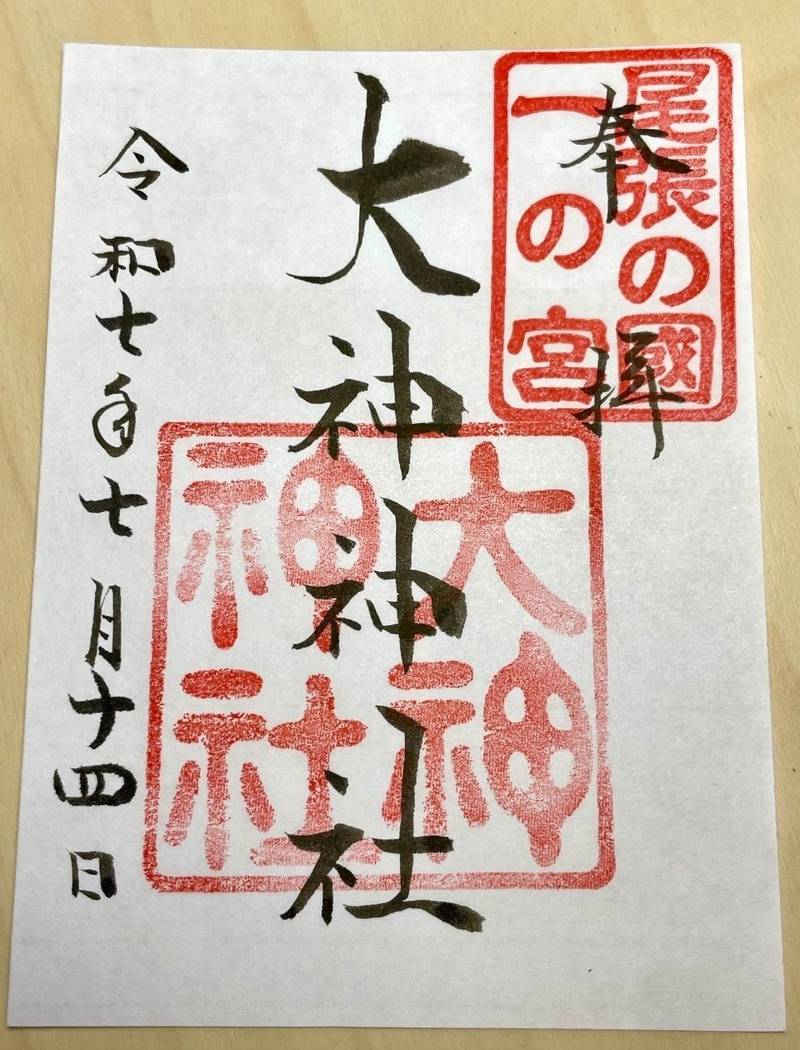 奉拝
尾張の國
一の宮
大神神社
大神
神社
令和七年七月十四日